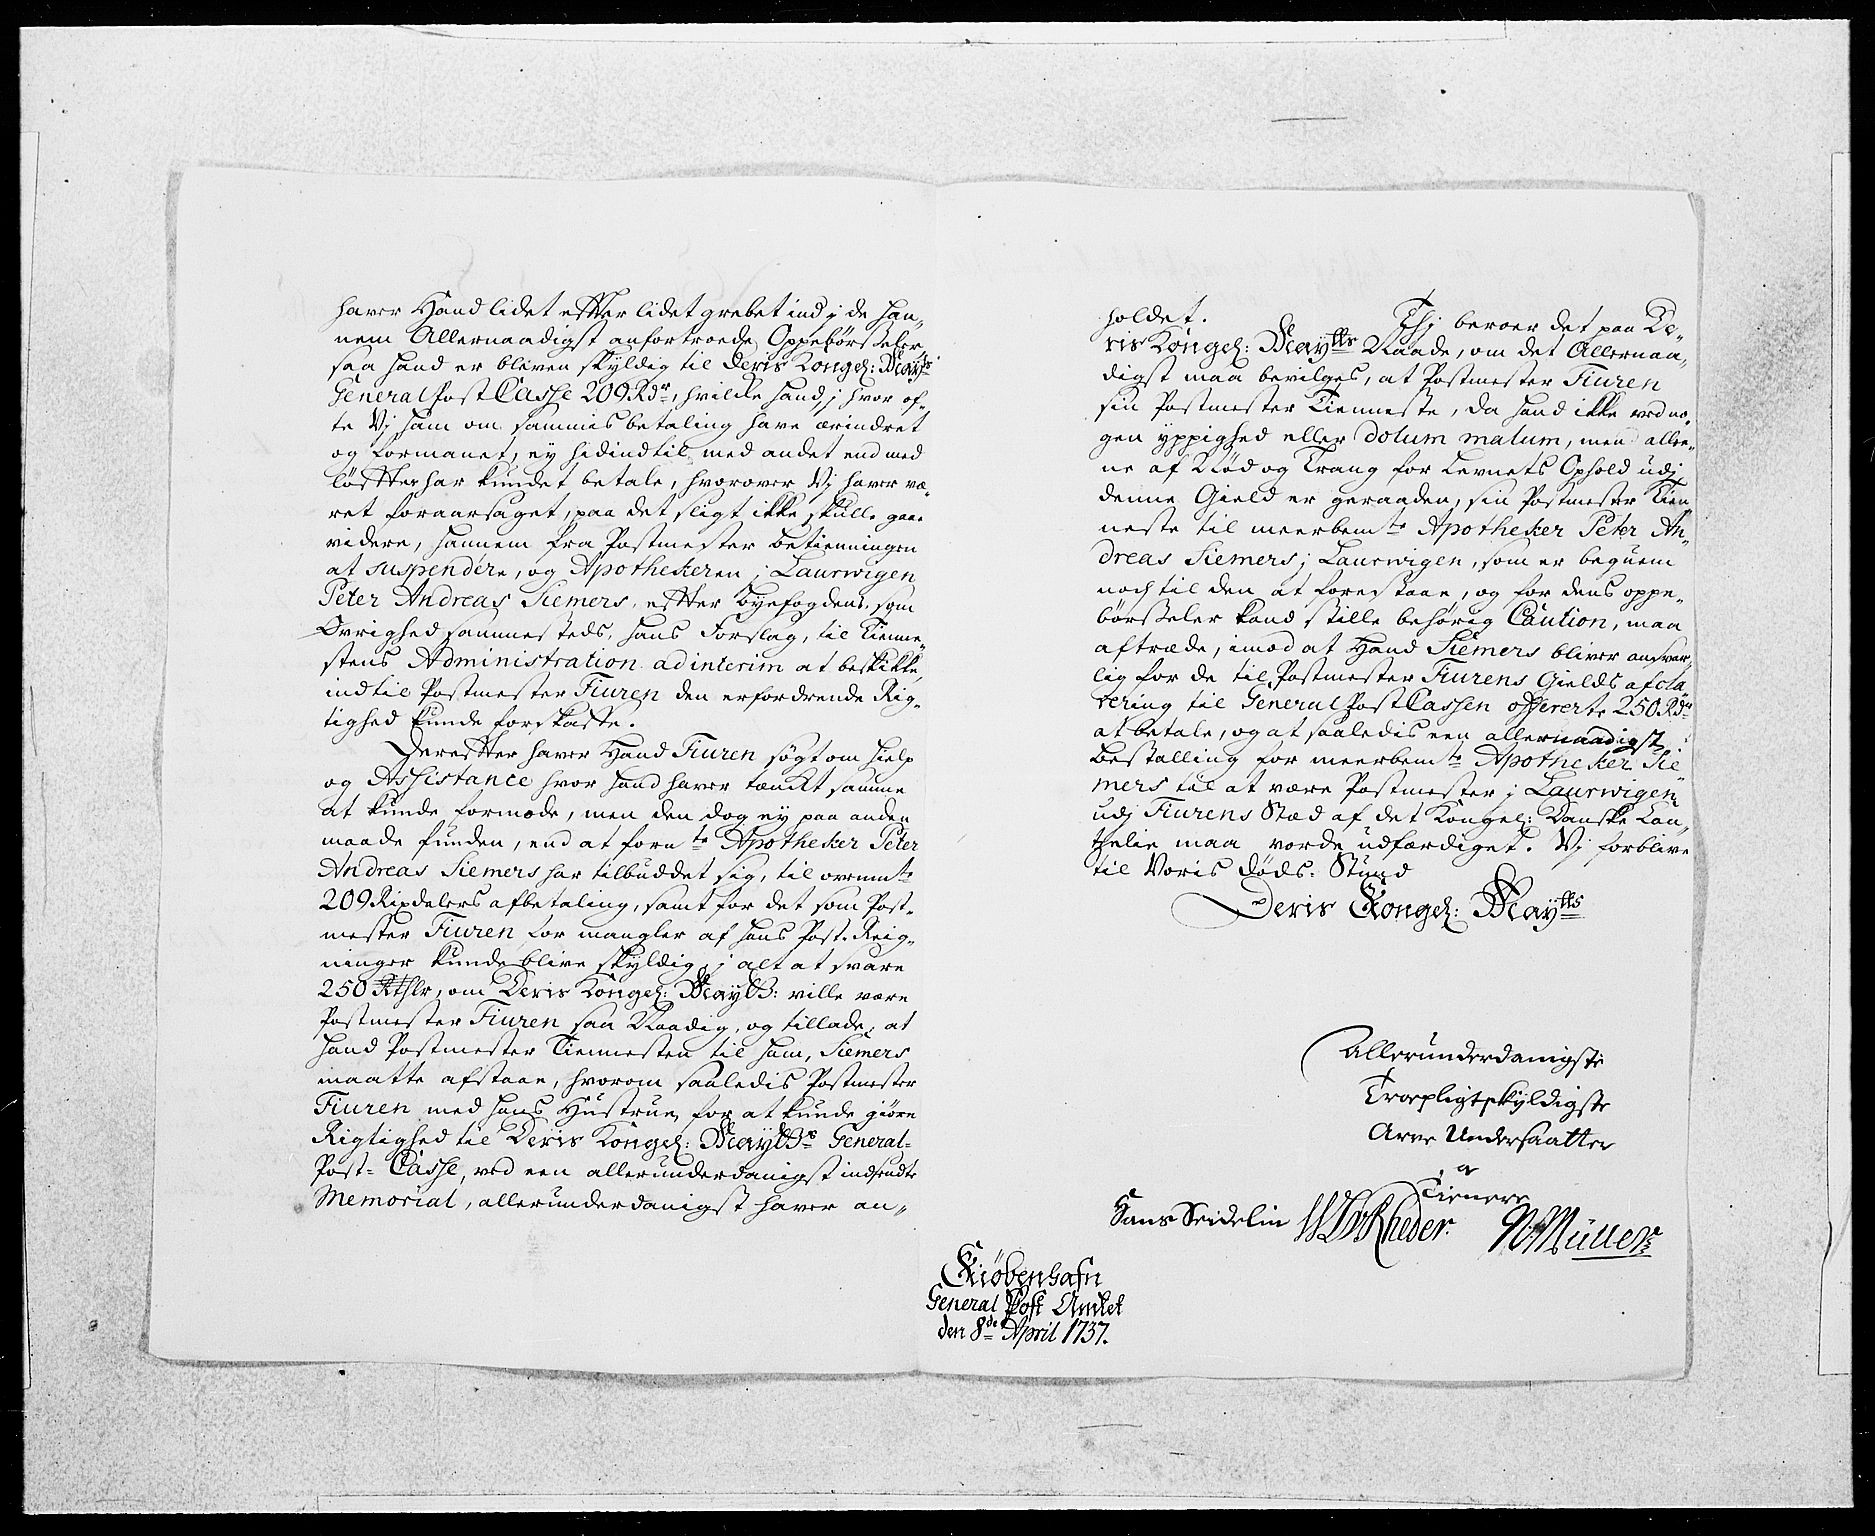 haver Hand lidet effter lidet grebet ind j de han„
nem Allernaadigst anfortroede Oppebørseler,
saa hand er bleven skyldig til Deris Kongel: Mayts
General Post Casse 209 Rdr, hvilke hand, j hvor of„
te Vj ham om sammis betaling have erindret
og formanet, ey hidindtil med andet end med
løffter har kundet betale, hvorover Vj haver væ„
ret foraarsaget, paa det sligt ikke skulle gaae
videre, hannem fra Postmester betienningen
at suspendere, og Apothekeren j Laurwigen
Peter Andreas Siemers, effter byefogdens, som
Øvrighed sammesteds, hans Forslag, til Tienne„
stens Administration ad interim at beskikke,
indtil Postmester Fiuren den erfordrende Rig„
tighed kunde forskaffe.
Dereffter haver Hand Fiuren søgt om hielp
og Assistance hvor hand haver tænckt samme
at kunde formode, men den dog ey paa anden
maade funden, end at forn te Apotheker Peter
Andreas Siemers har tilbuddet sig, til ovenm te
209 Rixdalers afbetaling, samt for det som Post„
mester Fiuren for mangler af hans Post-Reig„
ninger kunde blive skyldig, j alt at svare
250 Rthlr, om Deris Kongel: Maytt: ville være
Postmester Fiuren saa Naadig, og tillade, at
hand Postmester Tiennesten til ham, Siemers
maatte afstaae, hvorom saaledis Postmester
Fiuren med hans Hustrue, for at kunde giøre
Rigtighed til Deris Kongel: Maytts General-
Post- Casse, ved een allerunderdanigst indsendte
Memorial, allerunderdanigst haver an„
holdet.
Thj beroer det paa De„
ris Kongel: Maytts Naade, om det Allernaa„
digst maa bevilges, at Postmester Fiuren
sin Postmester Tienneste, da hand ikke ved no„
gen yppighed eller dolum malum, men alle„
ne af Nød og Trang for Levnets Ophold udj
denne Gield er geraaden, sin Postmester Tien„
neste til meerbem te Apotheker Peter An„
dreas Siemers j Laurwigen, som er beqvem
nock til den at forestaae, og for dens oppe„
børsseler kand stille behørig Caution, maa
aftræde, imod at Hand Siemers bliver ansvar„
lig for de til Postmester Fiurens Gields afcla„
rering til General Post Cassen offererte 250 Rdr
at betale, og at saaledis een allernaadigst
Bestalling for meerbem te Apotheker Sie„
mers til at være Postmester j Laurwigen
udj Fiurens Stæd af det Kongel: Danske Can„
zelie maa vorde udfærdiget. Vj forblive
til Voris Døds-Stund
Deris Kongel: Maytts
Allerunderdanigste
Troepligtskyldigste
Arve Undersaatter
og
Tienere
Hans Seidelin Rheder. Müller
Kiøbenhafn
General Post Amtet
den 8de April 1737.